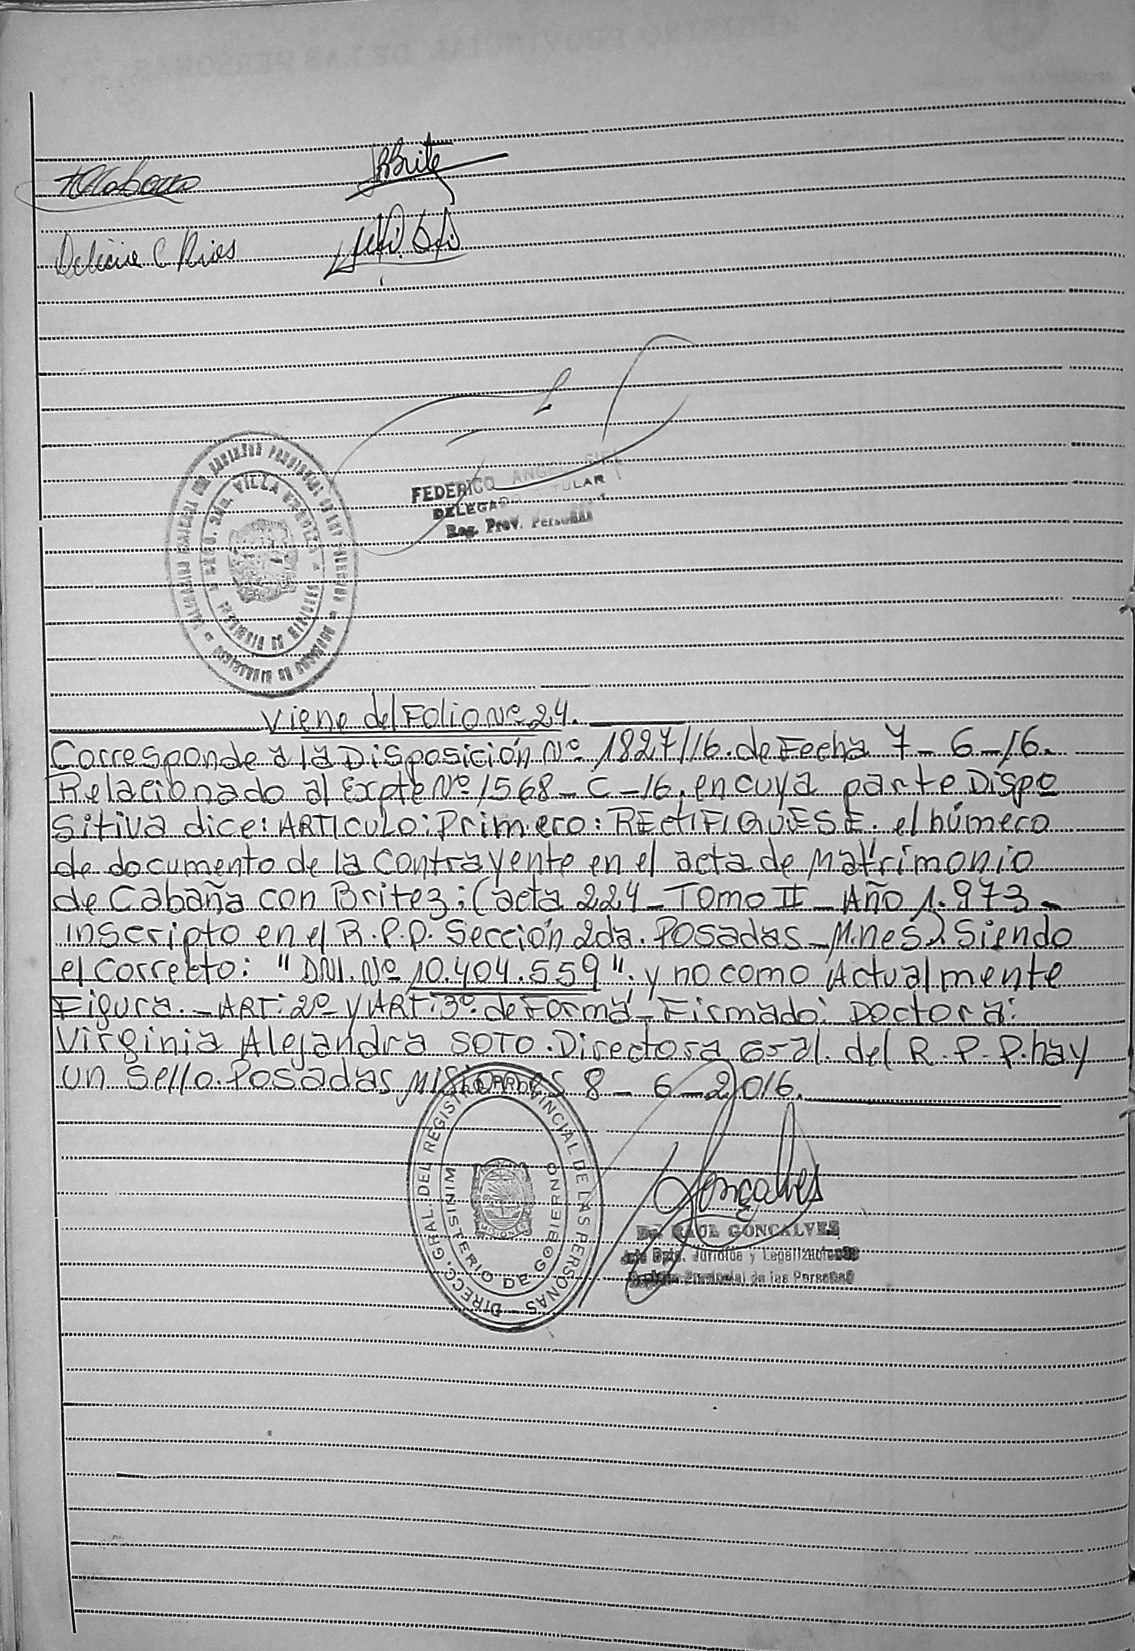 Delicia C Rios
FEDERICO ANGEL
DELEGADO TITULAR
Reg. Prov. Personas
VILLA
Viene del Folio Nº 24.
Corresponde a la Disposición Nº 1827/16. de Fecha 7-6-16.
Relacionado al Expte Nº 1568-C-16, en cuya parte Dispo
sitiva dice: ARTICULO: Primero: RECTIFIQUESE. el número
de documento de la contrayente en el acta de Matrimonio
de Cabaña con Britez; (acta 224-Tomo II-Año 1.973-
inscripto en el R.P.P. Sección 2da. Posadas-Mnes) Siendo
el correcto: "DNI. Nº 10.404.559"; y no como Actualmente
Figura.-ART: 2º y ART: 3º: de Forma-Firmado: Doctora:
Virginia Alejandra SOTO. Directora Gral. del R.P.P. hay
un sello. Posadas Misiones 8-6-2016.
DIRECC. GRAL. DEL REGISTRO PROVINCIAL DE LAS PERSONAS
MINISTERIO DE GOBIERNO
MISIONES
Gonçalves
Dr. RAUL GONCALVES
Jefe Dpto. Jurídico y Legalizaciones
Registro Provincial de las Personas